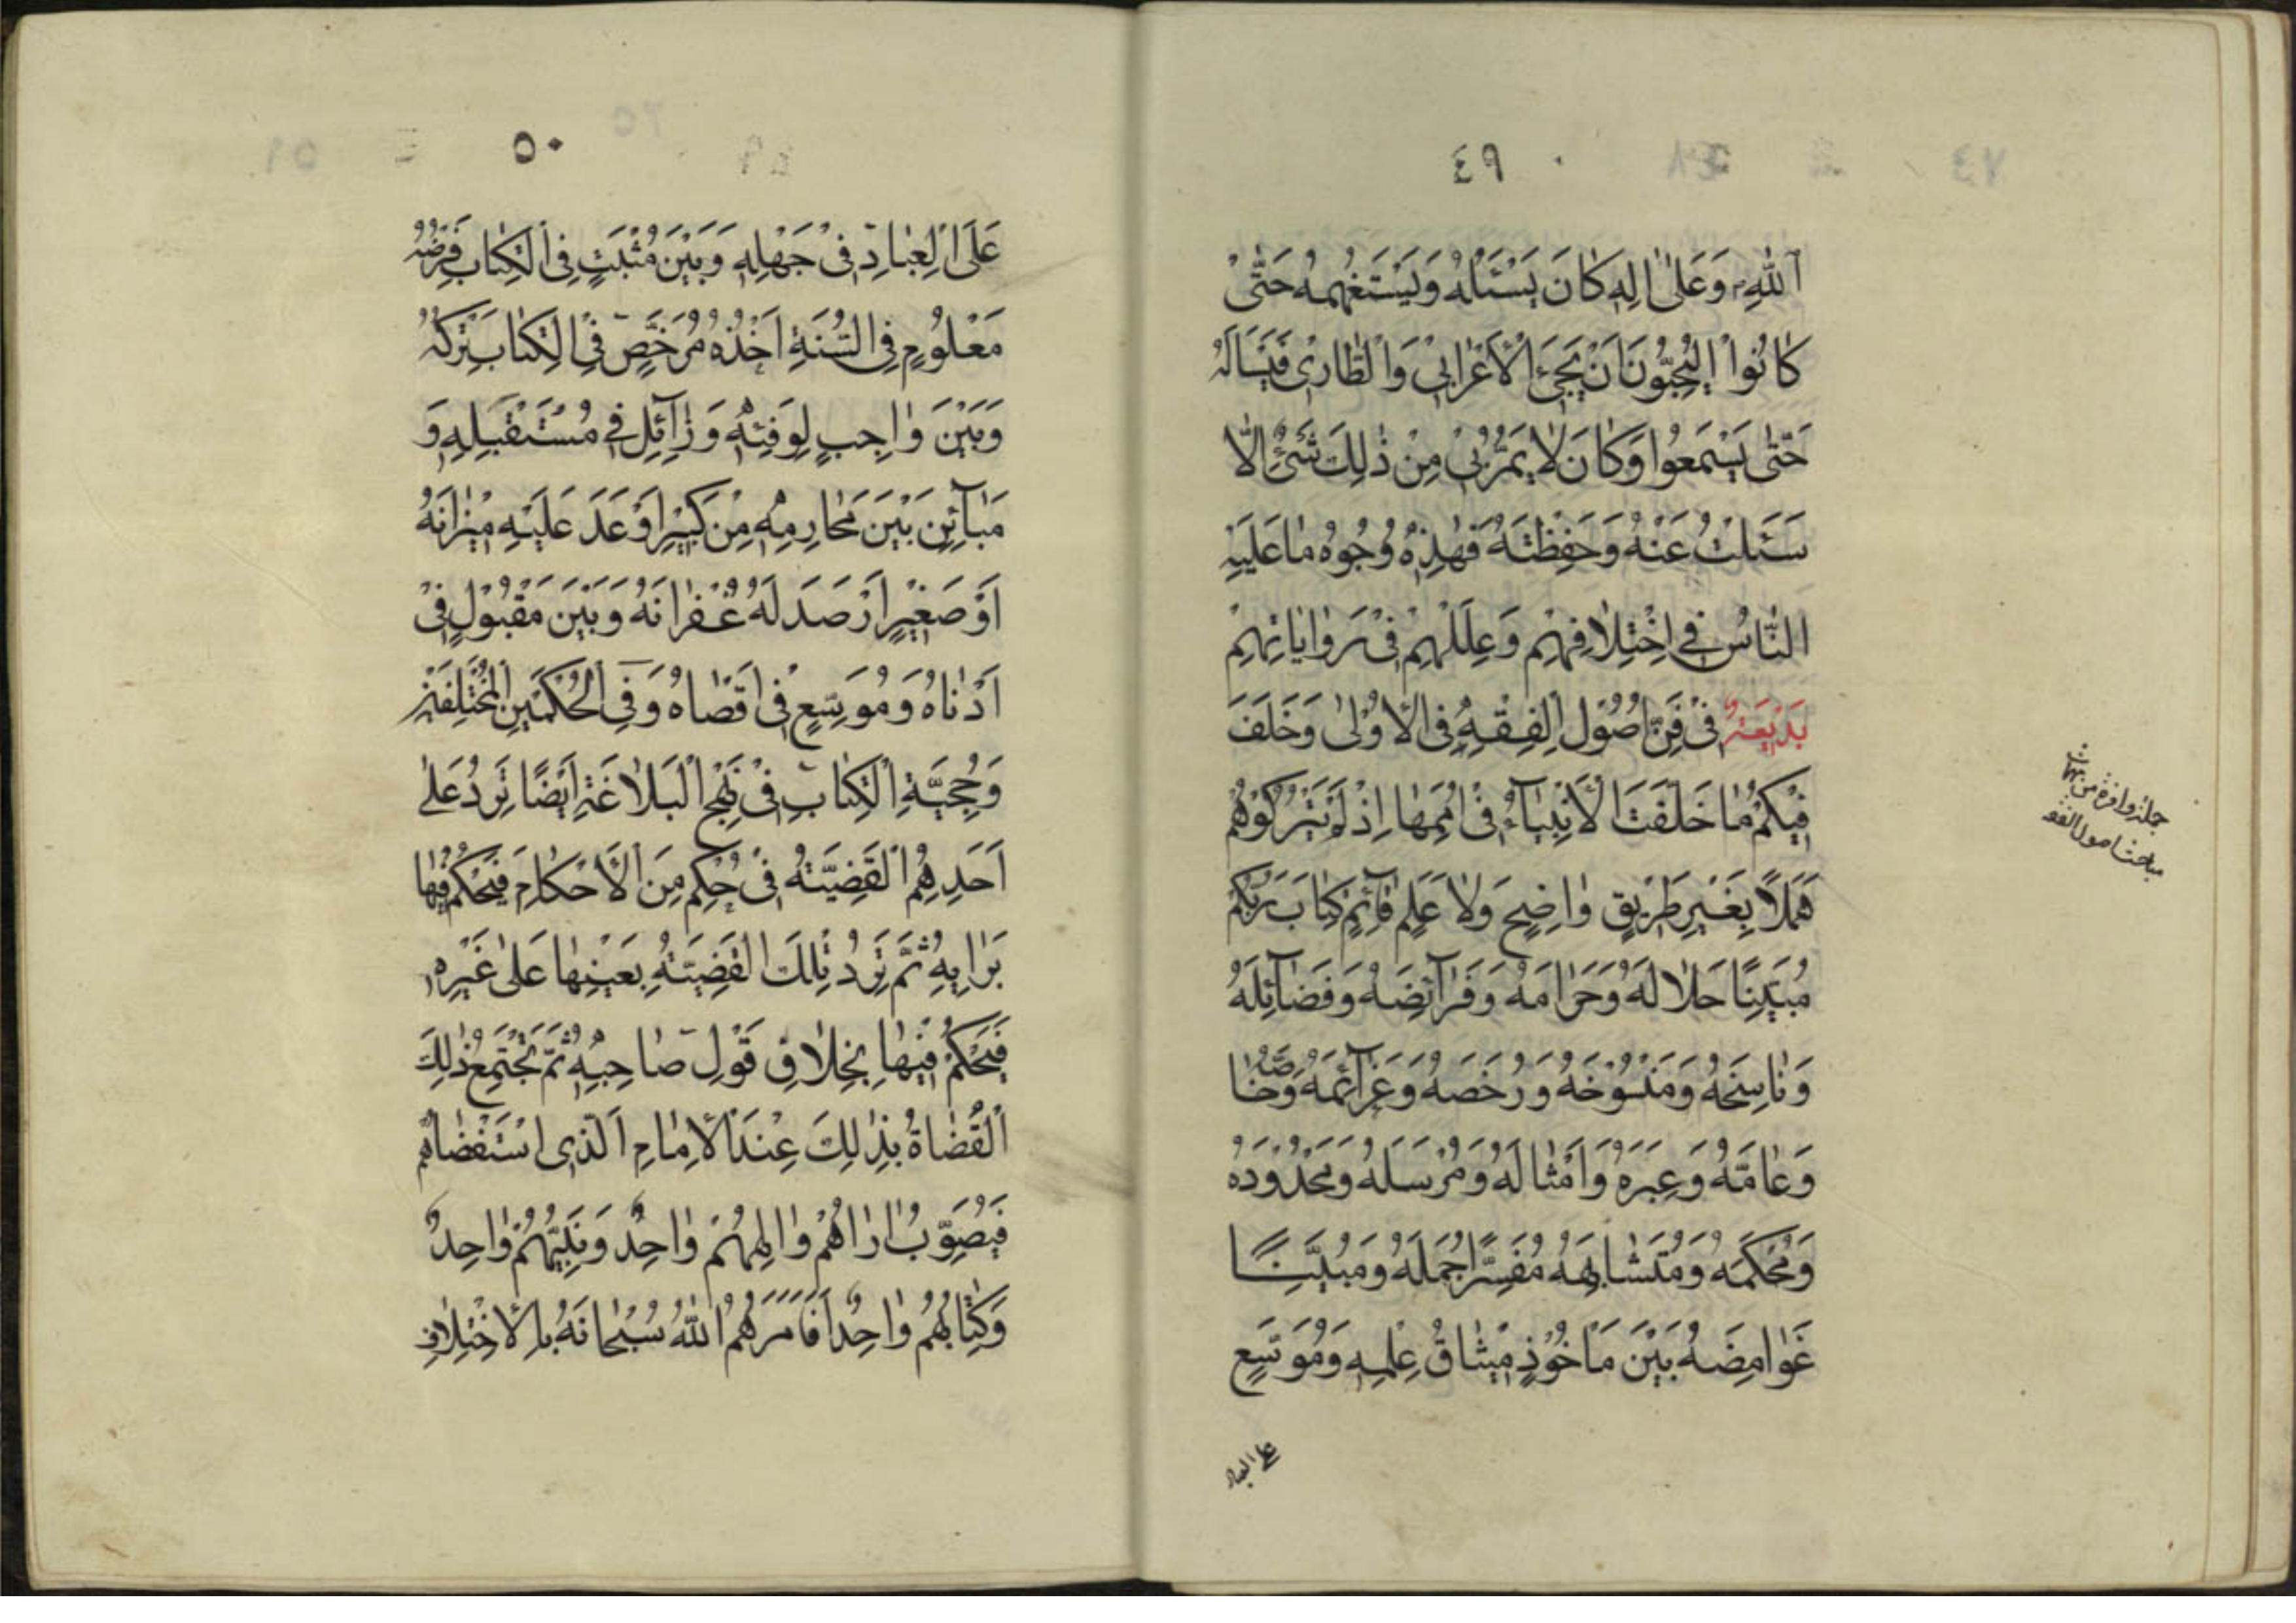 ٤٩
اللهِ وَعَلىٰ اٰلِهِ كٰانَ يَسْئَلُهُ وَيَسْتَفْهِمُهُ حَتّٰى
كٰانُوا لَيُحِبُّونَ اَنْ يَجِئَ الْاَعْرٰابِىُّ وَالطّٰارِى فَيَسْاَلَهُ
حَتّٰى يَسْمَعُوا وَكٰانَ لٰا يَمُرُّبِى مِنْ ذٰلِكَ شَئٌ اِلّٰا
سَئَلْتُ عَنْهُ وَحَفِظْتَهُ فَهٰذِهٖ وُجُوهُ مٰا عَلَيْهِ
النّٰاسُ فِى اخْتِلٰافِهِمْ وَعِلَلِهِمْ فِى رَوٰايٰاتِهِمْ
بَدِيْعَةٌ فِىْ فَنِّ اُصُوْلِ الْفِقْهِ فِى الْاُوْلىٰ وَخَلَّفَ
فِيْكُمْ مٰا خَلَّفَتَ الْاَنْبِيٰآءُ فِىْ اُمَمِهٰا اِذْ لَمْ يَتْرُكُوْهُمْ
هَمَلًا بِغَيْرِ طَرِيْقٍ وٰاضِحٍ وَلٰا عَلَمٍ قٰآئِمٍ كِتٰابَ رَبِّكُمْ
مُبَيِّنًا حَلٰالَهُ وَحَرٰامَهُ وَفَرٰآئِضَهُ وَفَضٰآئِلَهُ
وَنٰاسِخَهُ وَمَنْسُوْخَهُ وَرُخَصَهُ وَعَزٰآئِمَهُ وَخٰاصَّهُ
وَعٰامَّهُ وَعِبَرَهُ وَاَمْثٰالَهُ وَمُرْسَلَهُ وَمَحْدُوْدَهُ
وَمُحْكَمَهُ وَمُتَشٰابِهَهُ مُفَسِّرًا جُمَلَهُ وَمُبَيِّنًا
غَوٰامِضَهُ بَيْنَ مَاْخُوْذٍ مِيْثٰاقُ عِلْمِهٖ وَمُوَسَّعٍ
على العباد
جملة وافرة من مهمات
مباحث اصول الفقه
٥٠
عَلَى الْعِبٰادِ فِىْ جَهْلِهٖ وَبَيْنَ مُثْبَتٍ فِى الْكِتٰابِ فَرْضُهُ
مَعْلُوْمٍ فِى السُّنَةِ اَخْذُهُ مُرَخَّصٍ فِى الْكِتٰابِ تَرْكُهُ
وَبَيْنَ وٰاجِبٍ لِوَقْتِهٖ وَزٰآئِلٍ فِى مُسْتَقْبَلِهٖ وَ
مَبٰآئِنٍ بَيْنَ مَحٰارِمِهٖ مِنْ كَبِيْرٍ اَوْعَدَ عَلَيْهِ مِيْزٰانَهُ
اَوْ صَغِيْرٍ اَرْصَدَ لَهُ غُفْرٰانَهُ وَبَيْنَ مَقْبُوْلٍ فِىْ
اَدْنٰاهُ وَمُوَسَّعٍ فِى اَقْصٰاهُ وَفِى الْحُكْمَيْنِ الْمُخْتَلِفَيْنِ
وَحُجِّيَّةِ الْكِتٰابِ فِىْ نَهْجِ الْبَلٰاغَةِ اَيْضًا تَرِدُ عَلىٰ
اَحَدِهِمُ الْقَضِيَّةُ فِىْ حُكْمٍ مِنَ الْاَحْكٰامِ فَيَحْكُمُ فِيْهٰا
بَرٰايِهٖ ثُمَّ تَرِدُ تِلْكَ الْقَضِيَّةُ بِعَيْنِهٰا عَلىٰ غَيْرِهٖ
فَيَحْكُمُ فِيْهٰا بِخِلٰافِ قَوْلِ صٰاحِبِهٖ ثُمَّ تَجْتَمِعُ ذٰلِكَ
الْقُضٰاةُ بِذٰلِكَ عِنْدَ الْاِمٰامِ الَّذِى اسْتَقْضٰاهُمْ
فَيُصَوِّبُ اٰرٰاهُمْ وَاِلٰهُهُمْ وٰاحِدٌ وَنَبِيُّهُمْ وٰاحِدٌ
وَكِتٰابُهُمْ وٰاحِدٌ اَفَاَمَرَهُمُ اللهُ سُبْحٰانَهُ بِالْاِخْتِلٰافِ